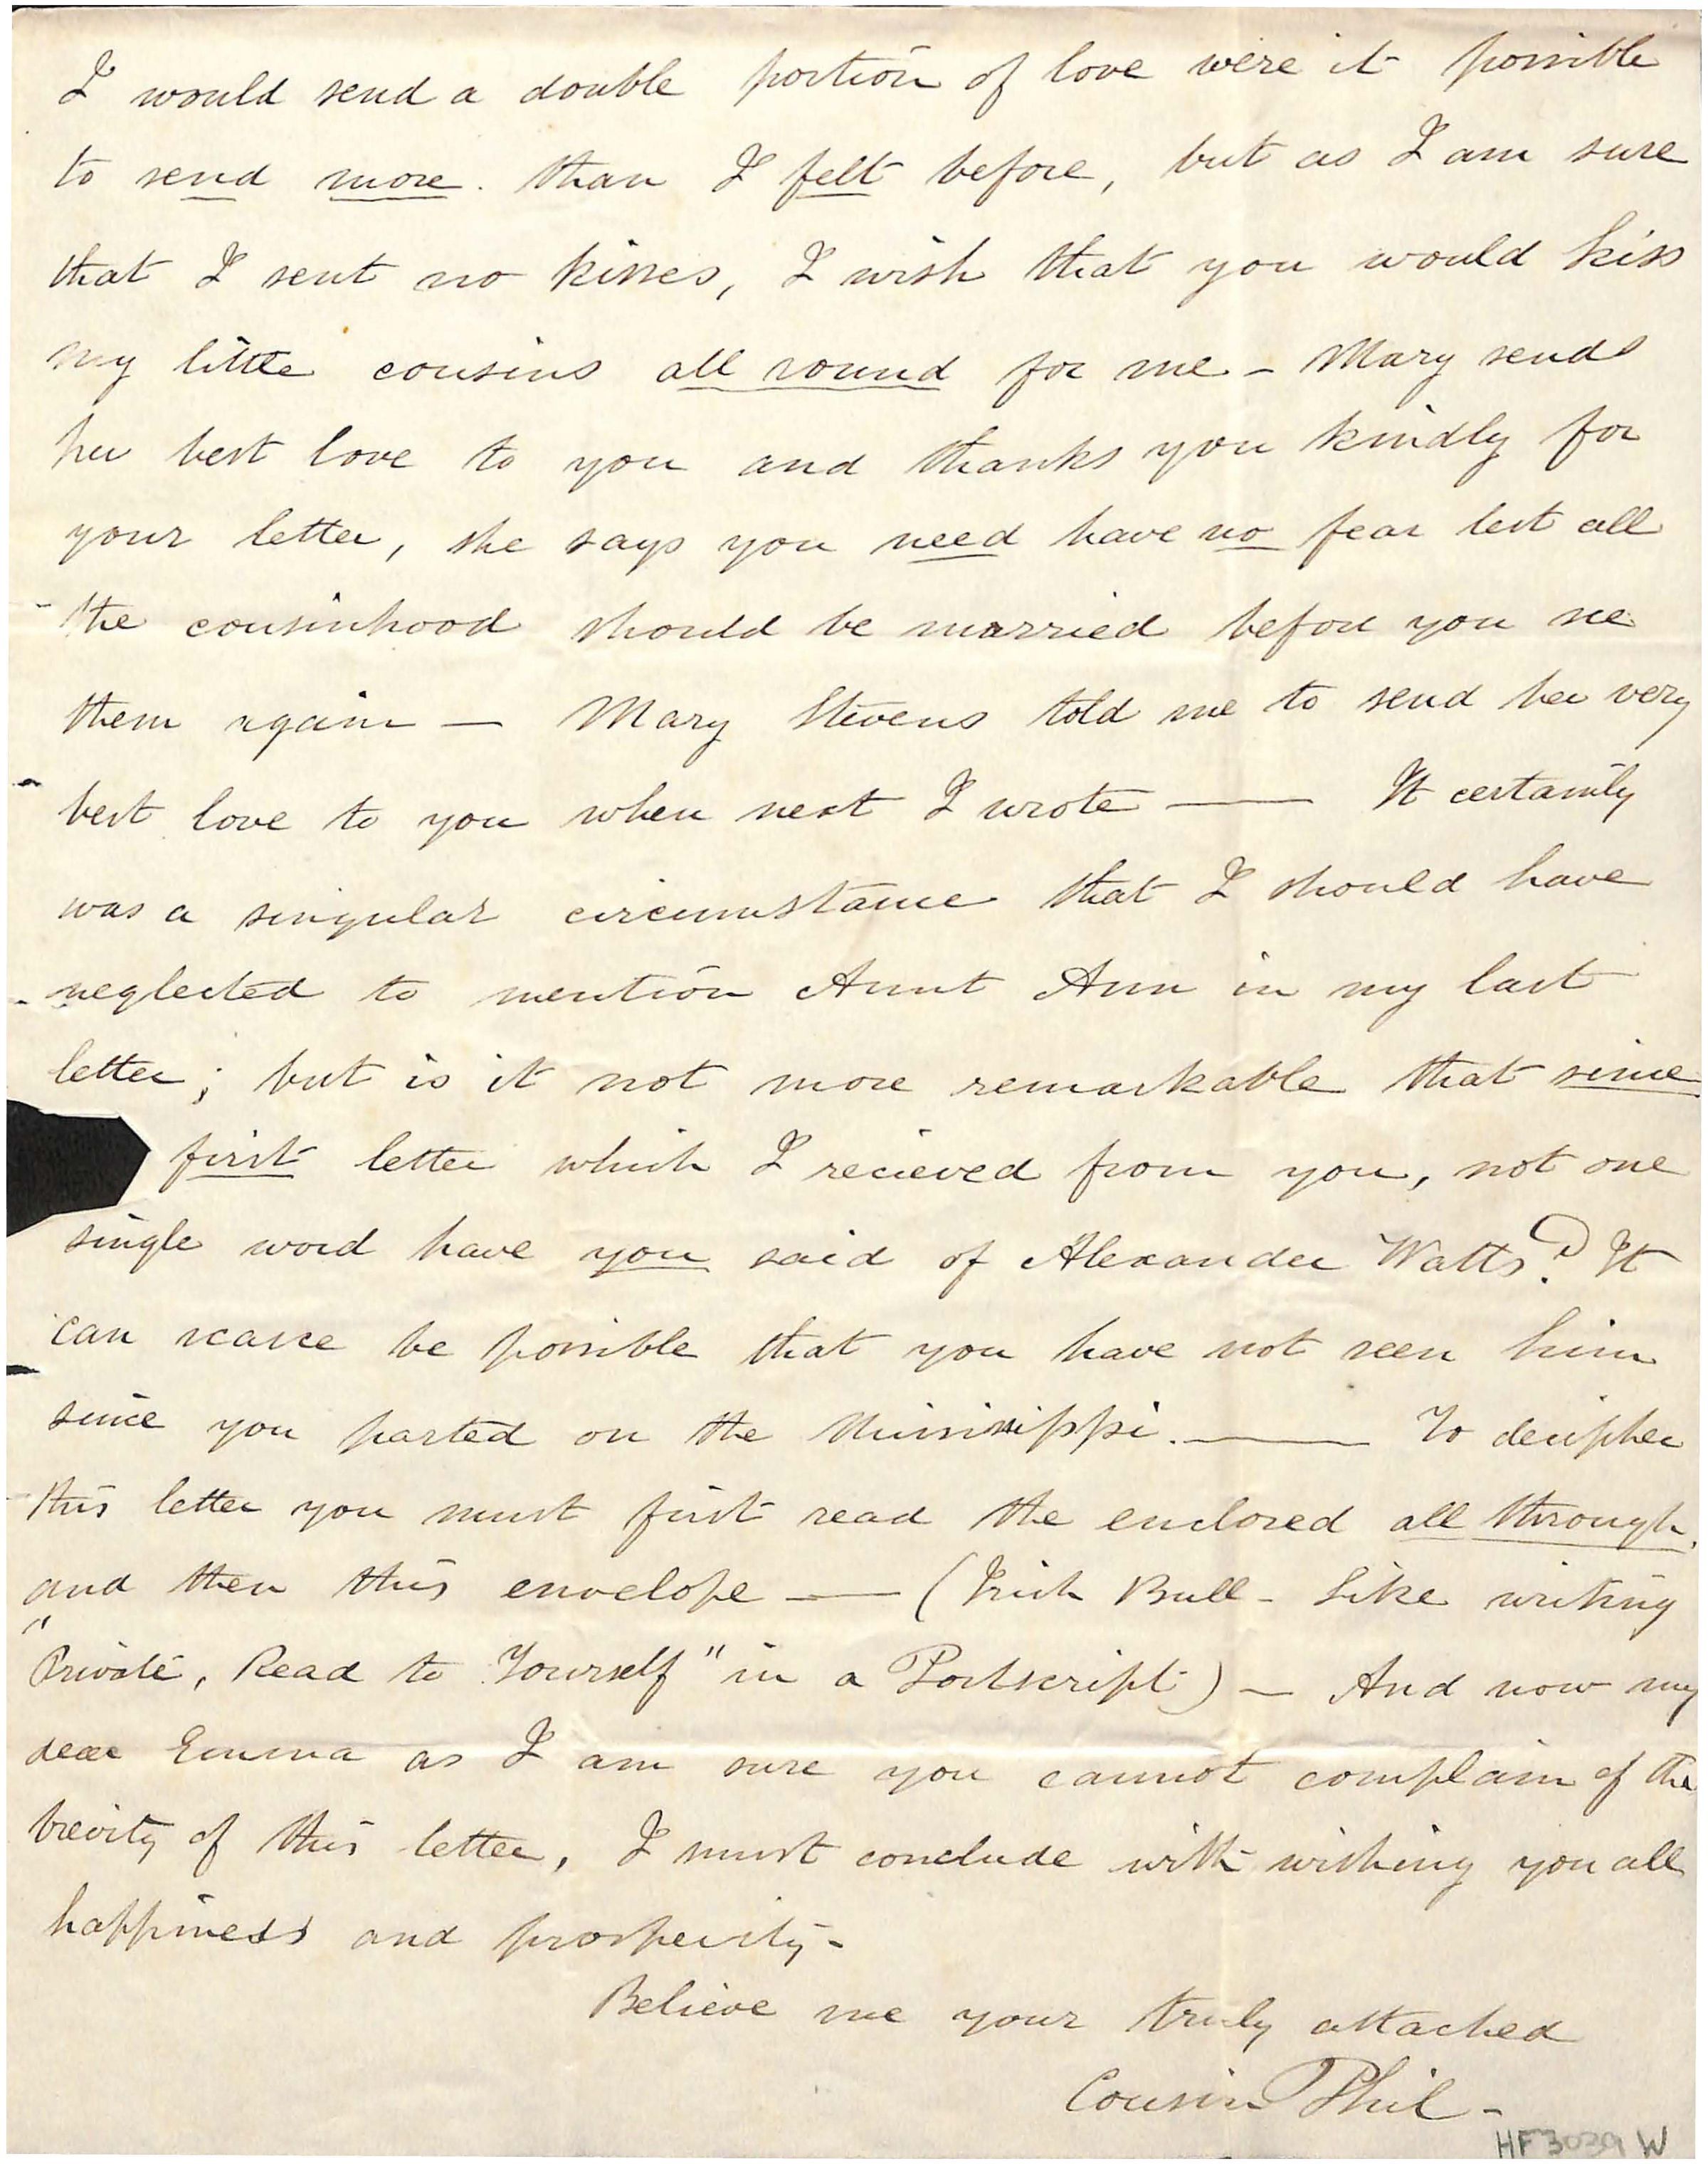 I would send a double portion of love were it possible
to send more. than I felt before, but as I am sure
that I sent no kisses, I wish that you would kiss
my little cousins all round for me - Mary sends
her best love to you and thanks you kindly for
your letter, she says you need have no fear lest all
the cousinhood should be married before you see
them again — Mary Stevens told me to send her very
best love to you when next I wrote —— It certainly
was a singular circumstance that I should have
neglected to mention Aunt Ann in my last
letter; but is it not more remarkable that since
first letter which I recieved from you, not one
single word have you said of Alexander Watts? It
can scarce be possible that you have not seen him
since you parted on the Mississippi. —— To decipher
this letter you must first read the enclosed all through,
and then this envelope —— (Irish Bull - Like writing
"Private, Read to Yourself" in a Postscript) — And now my
dear Emma as I am sure you cannot complain of the
brevity of this letter, I must conclude with wishing you all
happiness and prosperity -
Believe me your truly attached
Cousin Phil -
HF 3039 W